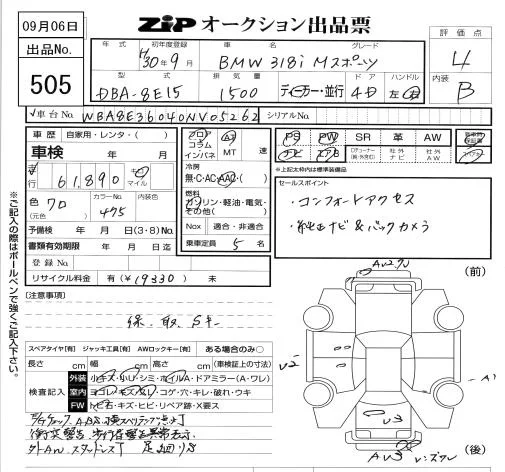 09月06日
ZIPオークション出品票
出品No.
505
年式 初年度登録 車名 グレード
H30年9月 BMW 318i Mスポーツ
型式 排気量 ドア ハンドル
DBA-8E15 1500 ディーラー・並行 4D 左・右
評価点
4
内装
B
車台No. WBA8E36040NV05262 シリアルNo.
車歴 自家用・レンタ・( )
フロア コラム インパネ AT MT 速
PS PW SR 革 AW
ナビ エアB 社外ナビ 社外AW
車検 年 月
冷房 無・C・AC・AAC・( )
※上記太枠内は標準装備品
走行 61,890 キロ マイル
燃料 ガソリン・軽油・電気・その他( )
セールスポイント
・コンフォートアクセス
・純正ナビ&バックカメラ
色 クロ カラーNo. 475 内装色
(元色)
予備検 年 月 日(3・8)No.
Nox 適合・非適合
書類有効期限 年 月 日迄
乗車定員 5 名
登録No.
リサイクル料金 有(¥19330) 未
※ご記入の際はボールペンで強くご記入下さい。
[注意事項]
保・取・Sキー
スペアタイヤ[有] ジャッキ工具[有] AWロックキー[有] ある場合のみ○
長さ cm 幅 cm 高さ cm (車検証上の寸法)
検査記入
外装 小キズ・小U・シミ・ホイルA・ドアミラー(A・ワレ)
室内 ヨゴレ・キズ・スレ・コゲ・穴・キレ・破れ・ウキ
FW トビ石・キズ・ヒビ・リペア跡・X要ス
(前)
V2
A1
V3
(後)